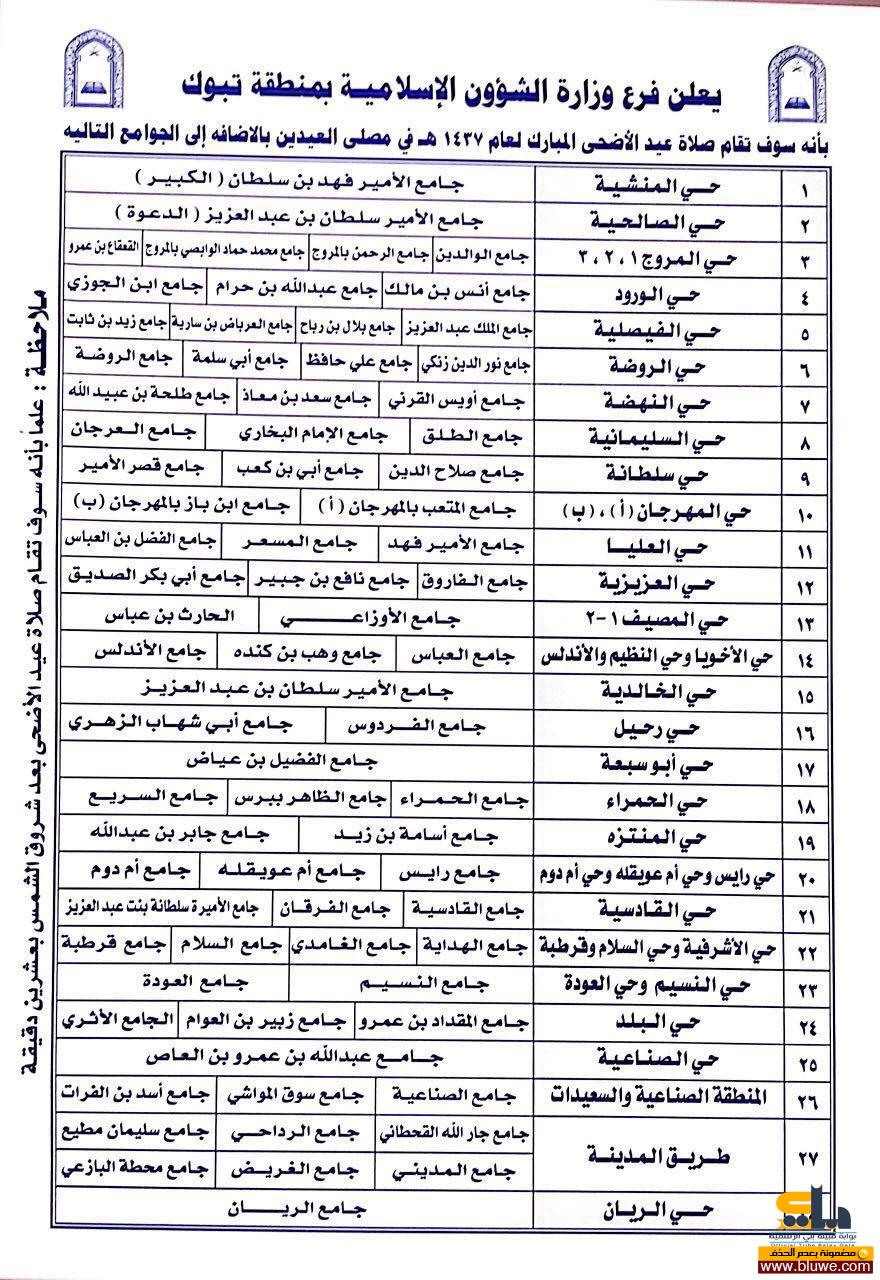 يعلن فرع وزارة الشؤون الإسلامية بمنطقة تبوك
بأنه سوف تقام صلاة عيد الأضحى المبارك لعام ١٤٣٧ هـ في مصلى العيدين بالاضافه إلى الجوامع التاليه
١ حي المنشية جامع الأمير فهد بن سلطان ( الكبير )
٢ حي الصالحية جامع الأمير سلطان بن عبد العزيز ( الدعوة )
٣ حي المروج ١ ، ٢ ، ٣ جامع الوالدين جامع الرحمن بالمروج جامع محمد حماد الوابصي بالمروج القعقاع بن عمرو
٤ حي الورود جامع أنس بن مالك جامع عبدالله بن حرام جامع ابن الجوزي
٥ حي الفيصلية جامع الملك عبد العزيز جامع بلال بن رباح جامع العرباض بن سارية جامع زيد بن ثابت
٦ حي الروضة جامع نور الدين زنكي جامع علي حافظ جامع أبي سلمة جامع الروضة
٧ حي النهضة جامع أويس القرني جامع سعد بن معاذ جامع طلحة بن عبيد الله
٨ حي السليمانية جامع الطلق جامع الإمام البخاري جامع العرجان
٩ حي سلطانة جامع صلاح الدين جامع أبي بن كعب جامع قصر الأمير
١٠ حي المهرجان (أ) ، (ب) جامع المتعب بالمهرجان (أ) جامع ابن باز بالمهرجان (ب)
١١ حي العليا جامع الأمير فهد جامع المسعر جامع الفضل بن العباس
١٢ حي العزيزية جامع الفاروق جامع نافع بن جبير جامع أبي بكر الصديق
١٣ حي المصيف ١-٢ جامع الأوزاعي الحارث بن عباس
١٤ حي الأخويا وحي النظيم والأندلس جامع العباس جامع وهب بن كنده جامع الأندلس
١٥ حي الخالدية جامع الأمير سلطان بن عبد العزيز
١٦ حي رحيل جامع الفردوس جامع أبي شهاب الزهري
١٧ حي أبو سبعة جامع الفضيل بن عياض
١٨ حي الحمراء جامع الحمراء جامع الظاهر بيبرس جامع السريع
١٩ حي المنتزه جامع أسامة بن زيد جامع جابر بن عبدالله
٢٠ حي رايس وحي أم عويقله وحي أم دوم جامع رايس جامع أم عويقله جامع أم دوم
٢١ حي القادسية جامع القادسية جامع الفرقان جامع الأميرة سلطانة بنت عبد العزيز
٢٢ حي الأشرفية وحي السلام وقرطبة جامع الهداية جامع الغامدي جامع السلام جامع قرطبة
٢٣ حي النسيم وحي العودة جامع النسيم جامع العودة
٢٤ حي البلد جامع المقداد بن عمرو جامع زبير بن العوام الجامع الأثري
٢٥ حي الصناعية جامع عبدالله بن عمرو بن العاص
٢٦ المنطقة الصناعية والسعيدات جامع الصناعية جامع سوق المواشي جامع أسد بن الفرات
٢٧ طريق المدينة جامع جار الله القحطاني جامع الرداحي جامع سليمان مطيع
جامع المديني جامع الغريض جامع محطة البازعي
حي الريان جامع الريان
ملاحظة : علماً بأنه سوف تقام صلاة عيد الأضحى بعد شروق الشمس بعشرين دقيقة
مضمونة بعدم الحذف
www.bluwe.com